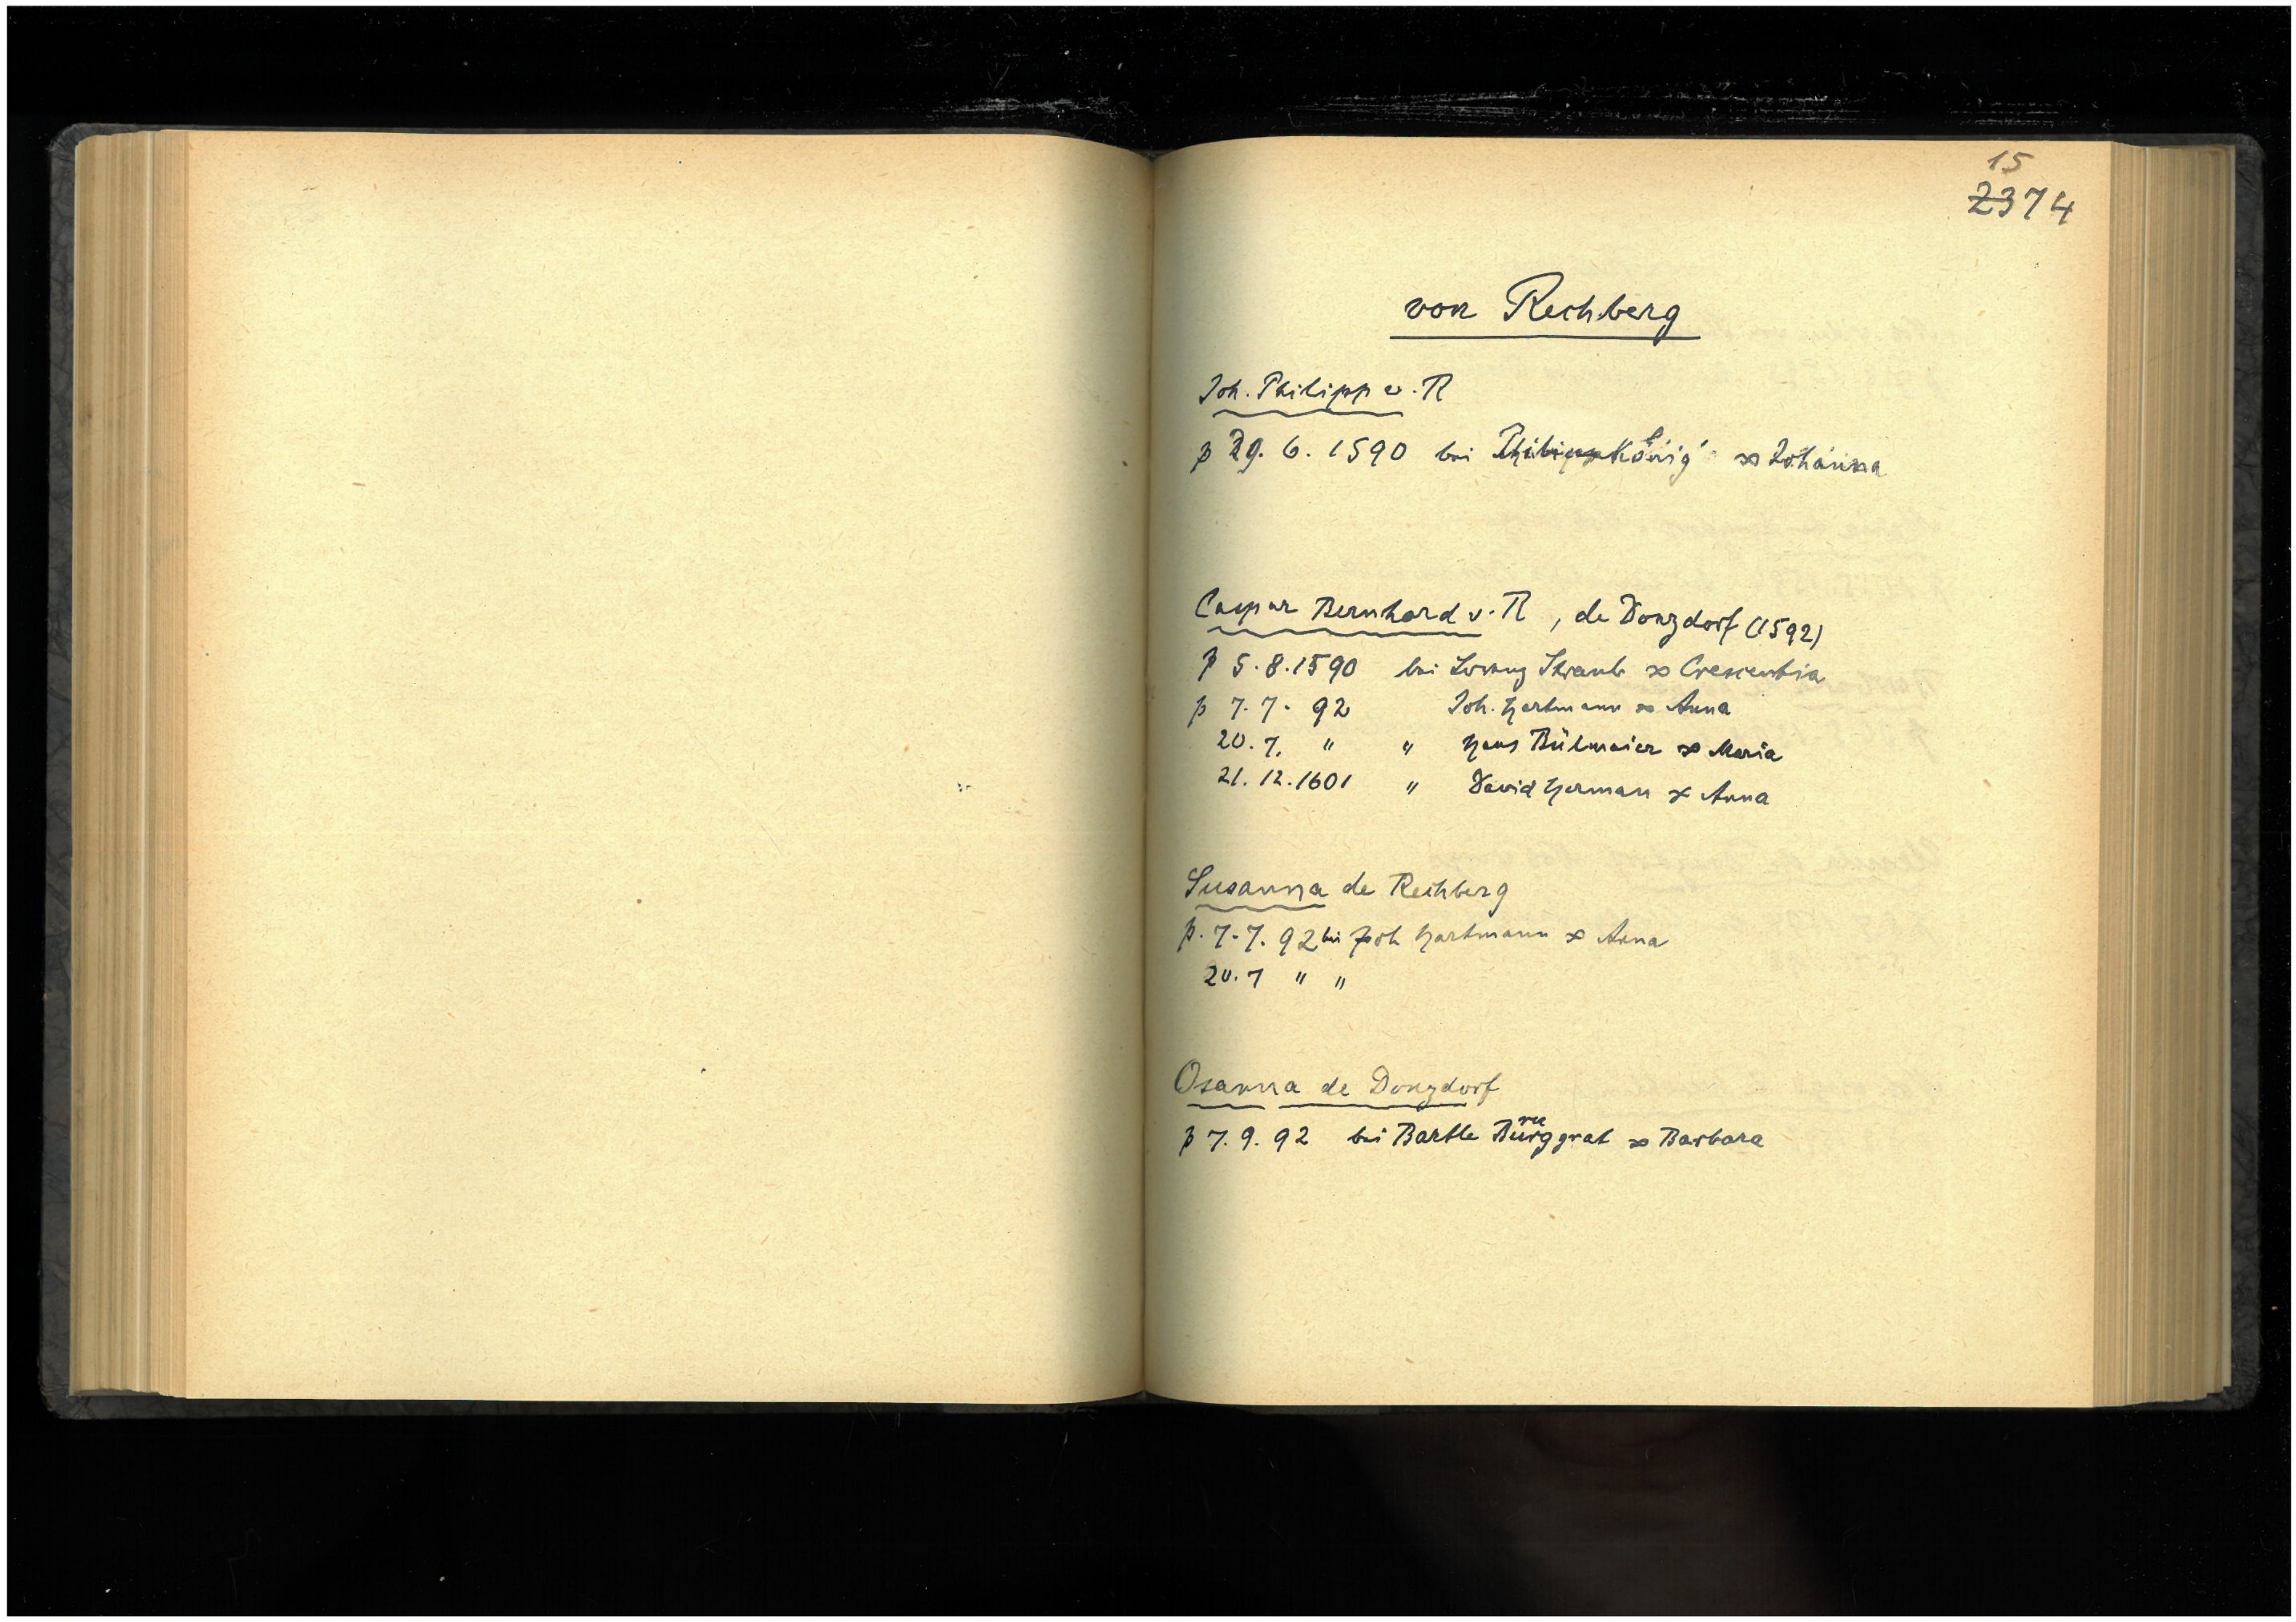 15
2374
von Rechberg
Joh. Philipp v. R
p 29. 6. 1590 bei König ∞ Johanna
Caspar Bernhard v. R , de Donzdorf (1592)
p 5. 8. 1590 bei Lorenz Straub ∞ Crescentia
p 7. 7. 92 Joh. Hartmann ∞ Anna
20. 7. " " Hans Bülmaier ∞ Maria
21. 12. 1601 " David Herman ∞ Anna
Susanna de Rechberg
p. 7. 7. 92 bei Joh Hartmann ∞ Anna
20. 7 " "
Osanna de Donzdorf
p 7. 9. 92 bei Bartle Burggraf ∞ Barbara